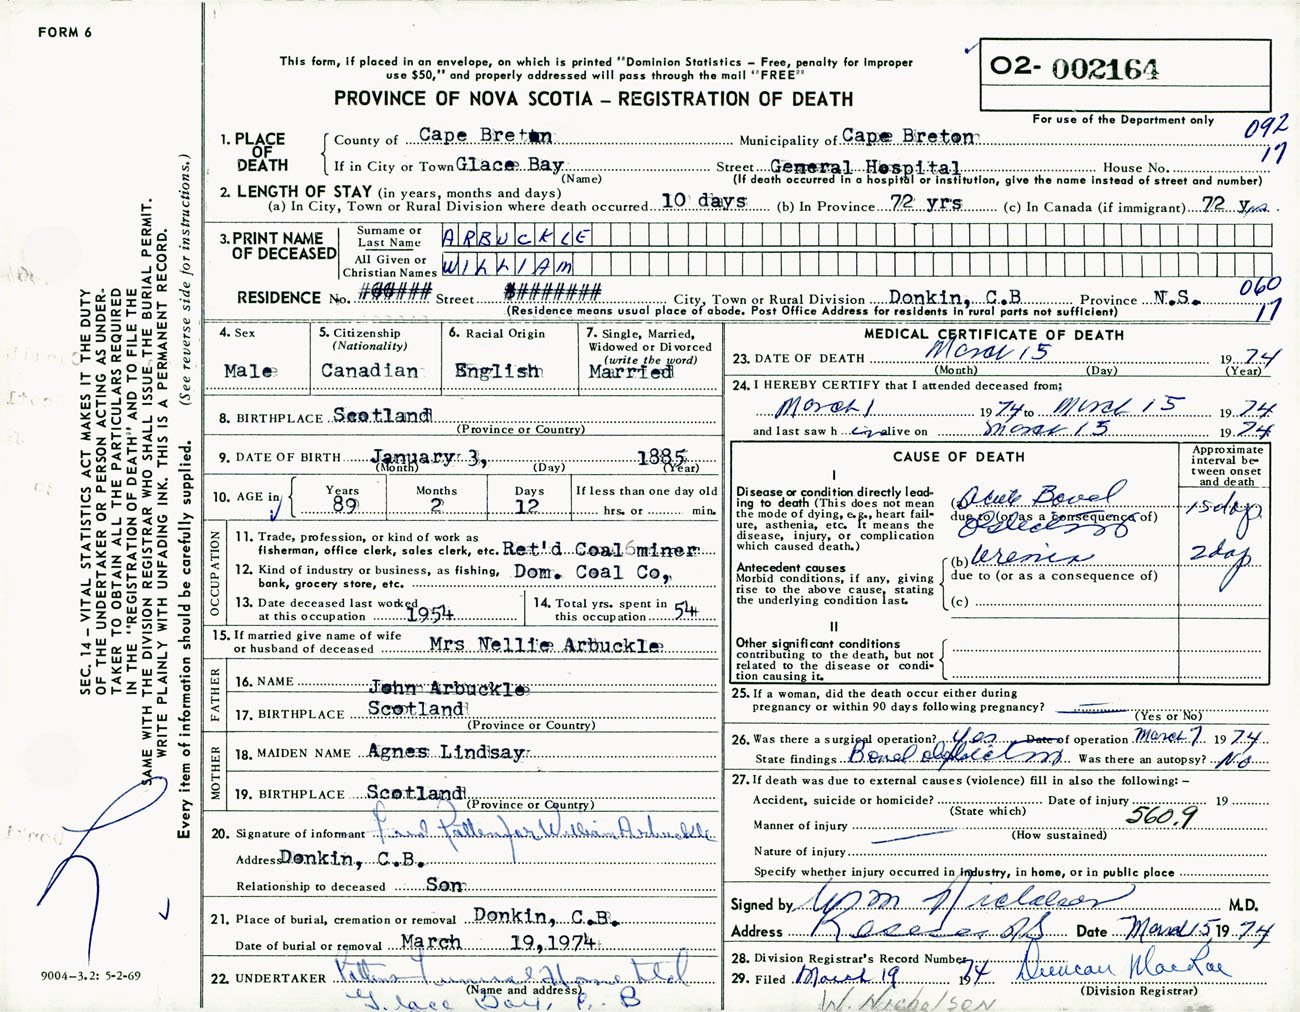 FORM 6
This form, if placed in an envelope, on which is printed "Dominion Statistics – Free, penalty for improper
use $50," and properly addressed will pass through the mail "FREE"
PROVINCE OF NOVA SCOTIA – REGISTRATION OF DEATH
O2- 002164
For use of the Department only
092
17
1. PLACE OF DEATH
County of Cape Breton Municipality of Cape Breton
If in City or Town Glace Bay Street General Hospital House No.
(Name) (If death occurred in a hospital or institution, give the name instead of street and number)
2. LENGTH OF STAY (in years, months and days)
(a) In City, Town or Rural Division where death occurred 10 days (b) In Province 72 yrs (c) In Canada (if immigrant) 72 yrs.
3. PRINT NAME OF DECEASED
Surname or Last Name ARBUCKLE
All Given or Christian Names WILLIAM
RESIDENCE No. ###### Street ######## City, Town or Rural Division Donkin, C.B Province N.S.
060
17
(Residence means usual place of abode. Post Office Address for residents in rural parts not sufficient)
4. Sex
Male
5. Citizenship
(Nationality)
Canadian
6. Racial Origin
English
7. Single, Married,
Widowed or Divorced
(write the word)
Married
8. BIRTHPLACE Scotland
(Province or Country)
9. DATE OF BIRTH January 3, 1885
(Month) (Day) (Year)
10. AGE in
Years Months Days If less than one day old
89 2 12 hrs. or min.
OCCUPATION
11. Trade, profession, or kind of work as
fisherman, office clerk, sales clerk, etc. Ret'd Coal miner
12. Kind of industry or business, as fishing,
bank, grocery store, etc. Dom. Coal Co,
13. Date deceased last worked
at this occupation 1954
14. Total yrs. spent in
this occupation 54
15. If married give name of wife
or husband of deceased Mrs Nellie Arbuckle
FATHER
16. NAME John Arbuckle
17. BIRTHPLACE Scotland
(Province or Country)
MOTHER
18. MAIDEN NAME Agnes Lindsay
19. BIRTHPLACE Scotland
(Province or Country)
20. Signature of informant Patten for William Arbuckle
Address Donkin, C.B.
Relationship to deceased Son
21. Place of burial, cremation or removal Donkin, C.B.
Date of burial or removal March 19, 1974
22. UNDERTAKER Pattens Funeral Home Ltd
(Name and address)
Glace Bay, C.B
MEDICAL CERTIFICATE OF DEATH
23. DATE OF DEATH March 15 1974
(Month) (Day) (Year)
24. I HEREBY CERTIFY that I attended deceased from:
March 1 1974 to March 15 1974
and last saw h im alive on March 15 1974
CAUSE OF DEATH
Approximate
interval be-
tween onset
and death
I
Disease or condition directly lead-
ing to death (This does not mean
the mode of dying, e.g., heart fail-
ure, asthenia, etc. It means the
disease, injury, or complication
which caused death.)
(a) Acute Bowel
due to (or as a consequence of)
Obstruction
15 days
Antecedent causes
Morbid conditions, if any, giving
rise to the above cause, stating
the underlying condition last.
(b) Uremia
due to (or as a consequence of)
2 days
(c)
II
Other significant conditions
contributing to the death, but not
related to the disease or condi-
tion causing it.
25. If a woman, did the death occur either during
pregnancy or within 90 days following pregnancy?
(Yes or No)
26. Was there a surgical operation? yes Date of operation March 7 1974
State findings Bowel obstruction Was there an autopsy? No
27. If death was due to external causes (violence) fill in also the following: –
Accident, suicide or homicide? Date of injury 19
(State which)
560.9
Manner of injury
(How sustained)
Nature of injury
Specify whether injury occurred in Industry, in home, or in public place
Signed by Wm Nicholson M.D.
Address Reserve NS Date March 15, 1974
28. Division Registrar's Record Number
29. Filed March 19 1974 Duncan MacRae
(Division Registrar)
W. Nicholson
SEC. 14 – VITAL STATISTICS ACT MAKES IT THE DUTY
OF THE UNDERTAKER OR PERSON ACTING AS UNDER-
TAKER TO OBTAIN ALL THE PARTICULARS REQUIRED
IN THE "REGISTRATION OF DEATH" AND TO FILE THE
SAME WITH THE DIVISION REGISTRAR WHO SHALL ISSUE THE BURIAL PERMIT.
WRITE PLAINLY WITH UNFADING INK. THIS IS A PERMANENT RECORD.
Every item of information should be carefully supplied. (See reverse side for instructions.)
9004-3.2: 5-2-69